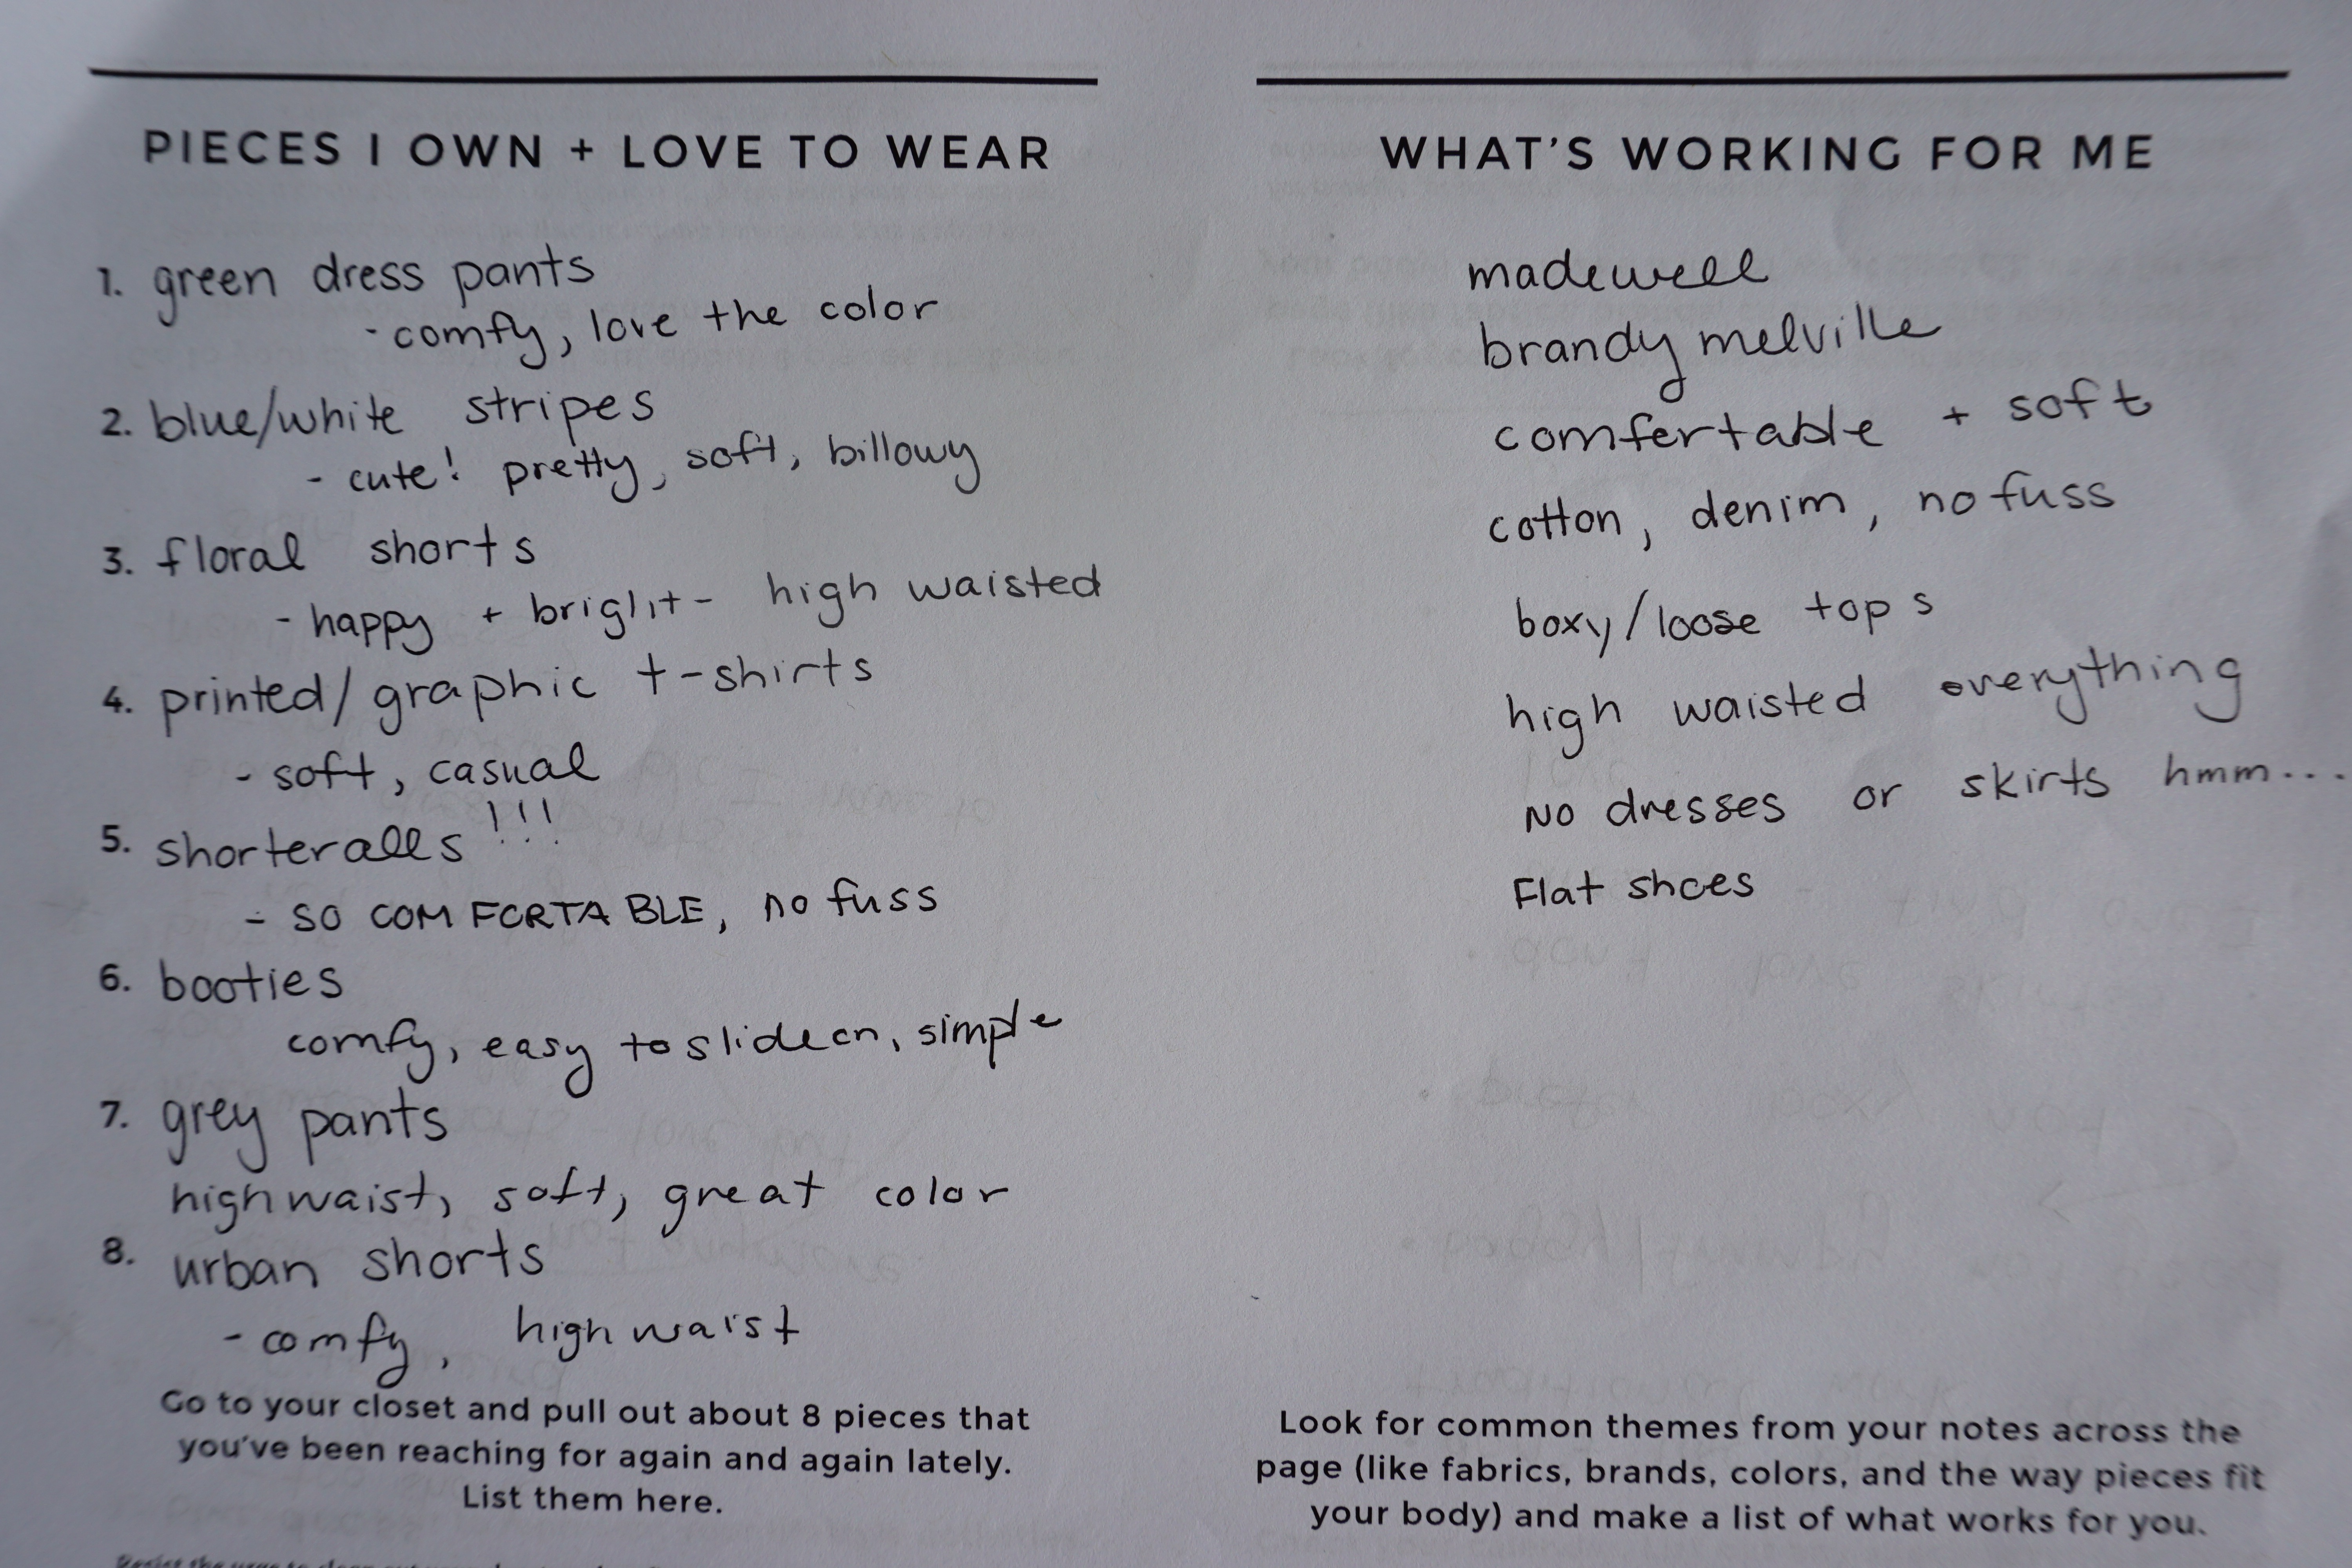 PIECES I OWN + LOVE TO WEAR
1. green dress pants
- comfy, love the color
2. blue/white stripes
- cute! pretty, soft, billowy
3. floral shorts
- happy + bright - high waisted
4. printed/graphic t-shirts
- soft, casual
5. shorteralls!!!
- SO COMFORTABLE, no fuss
6. booties
comfy, easy to slide on, simple
7. grey pants
high waist, soft, great color
8. urban shorts
- comfy, high waist
Go to your closet and pull out about 8 pieces that
you've been reaching for again and again lately.
List them here.
WHAT'S WORKING FOR ME
madewell
brandy melville
comfertable + soft
cotton, denim, no fuss
boxy/loose tops
high waisted everything
No dresses or skirts hmm...
Flat shoes
Look for common themes from your notes across the
page (like fabrics, brands, colors, and the way pieces fit
your body) and make a list of what works for you.